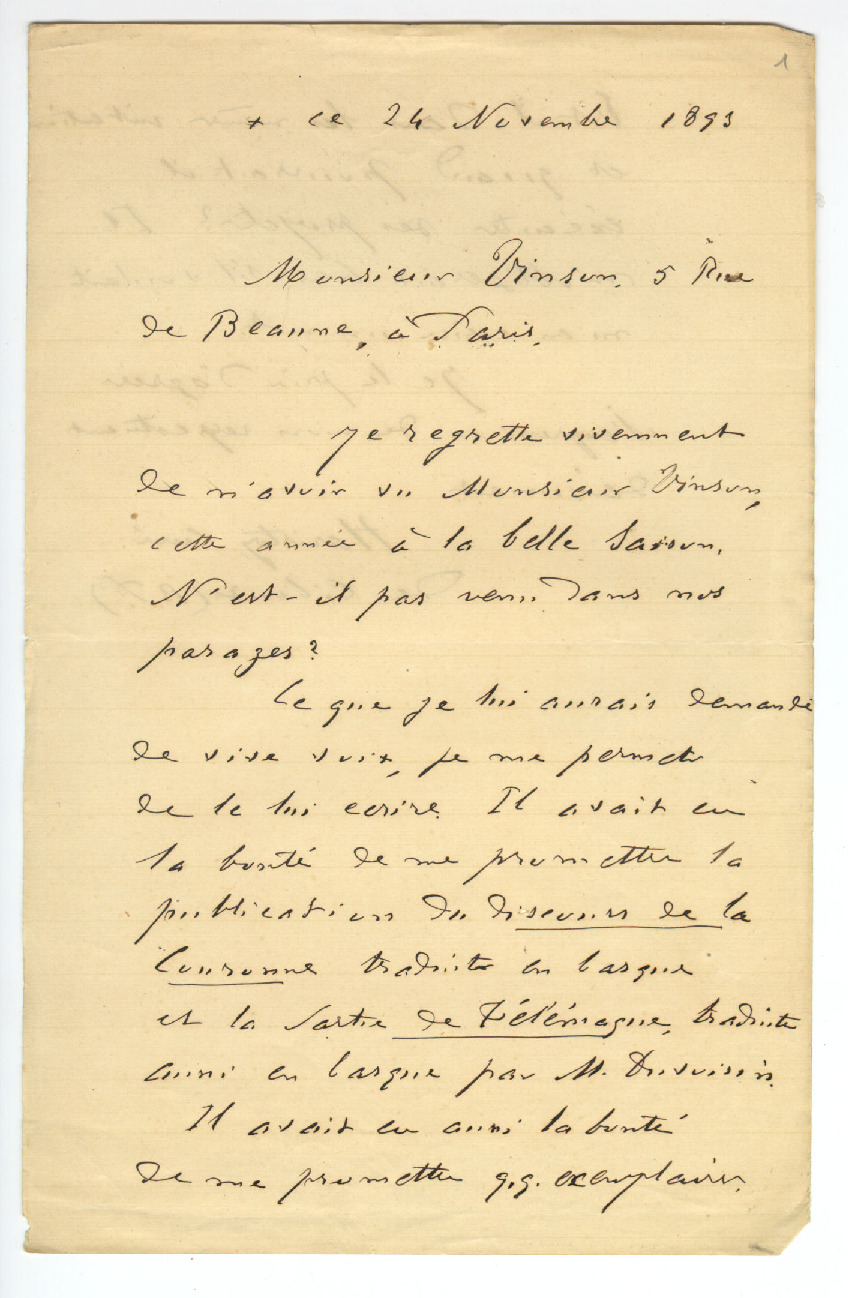 1
+ ce 24 Novembre 1893
Monsieur Vinson, 5 Rue
de Beaune, à Paris.
Je regrette vivement
de n'avoir vu Monsieur Vinson,
cette année à la belle Saison.
N'est-il pas venu dans nos
parages?
Ce que je lui aurais demandé
de vive voix, je me permets
de le lui ecrire. Il avait eu
la bonté de me promettre la
publication du discours de la
Couronne traduite en basque
et la partie de Télémaque, traduite
aussi en basque par M. Duvoisin.
Il avait eu aussi la bonté
de me promettre q.q. exemplaires.